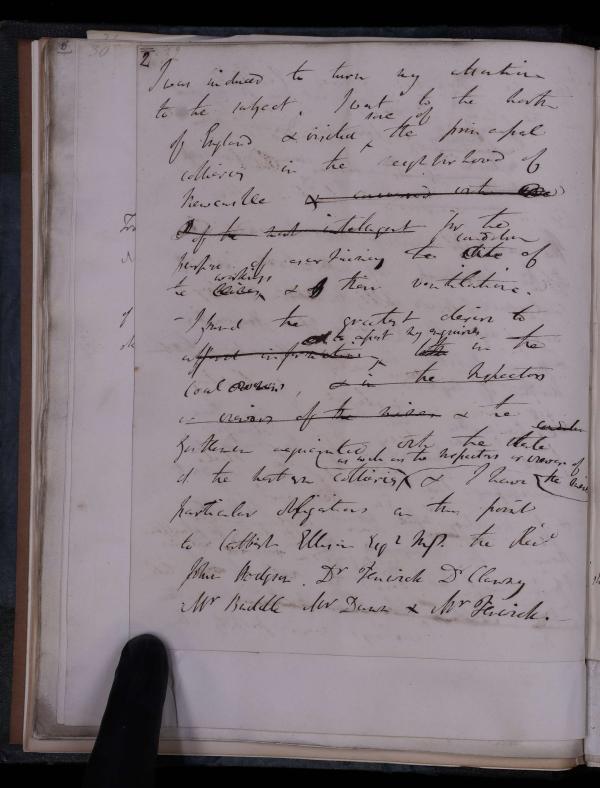 2
I was induced to turn my attention
to the subject. I went to the north
of England & visited some of the principal
collieries in the neighbourhood of
Newcastle & conversed with
of the most intelligent for the
purpose of ascertaining the condition of
the workings & of their ventilation.
- I found the greatest desire to
assist my enquiries
afford information in the
Coal owners, & in the Inspectors
or viewers of the mines & the
Gentlemen acquainted with the state
as well as the inspectors or viewers of
of the northern collieries & I have the mines
particular obligations on this point
to Cuthbert Ellison Esqr MP. the Revd
John Hodgson. Dr Fenwick Dr Clanny
Mr Buddle Mr Dunn & Mr Fenwick.